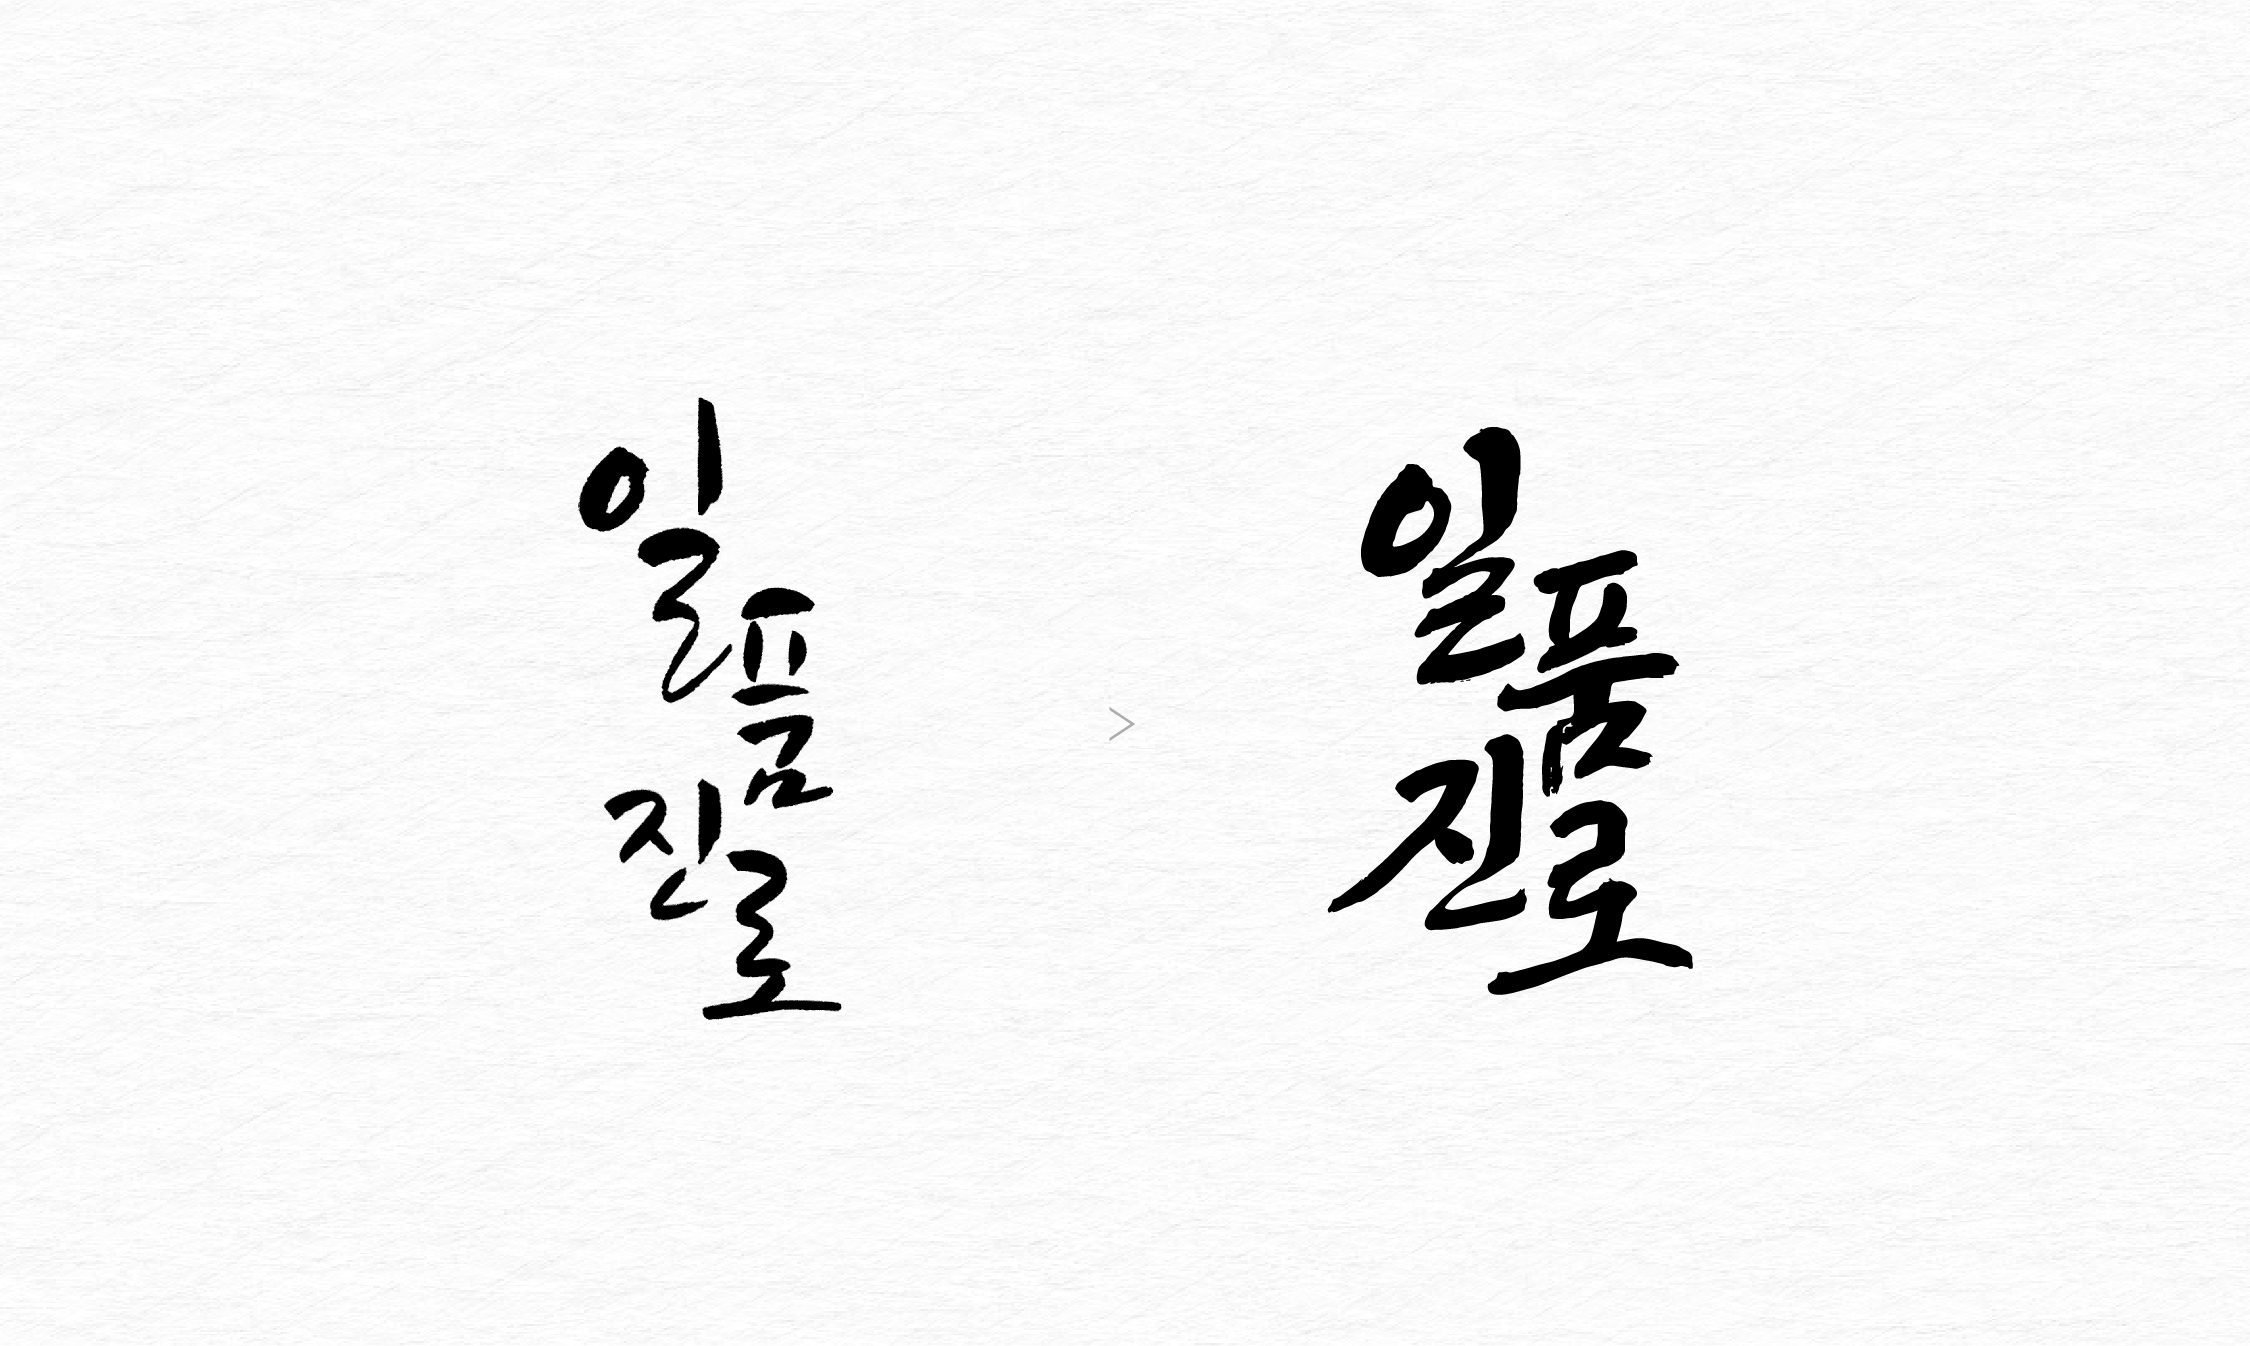 일품
진로
>
일품
진로